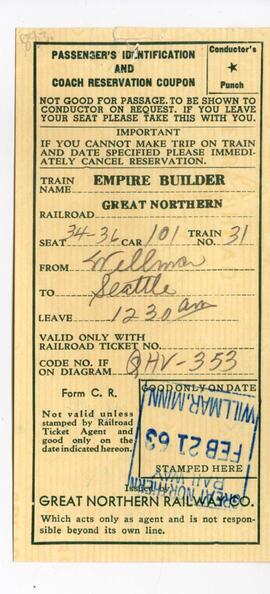 PASSENGER'S IDENTIFICATION
AND
COACH RESERVATION COUPON
Conductor's
★
Punch
NOT GOOD FOR PASSAGE. TO BE SHOWN TO
CONDUCTOR ON REQUEST. IF YOU LEAVE
YOUR SEAT PLEASE TAKE THIS WITH YOU.
IMPORTANT
IF YOU CANNOT MAKE TRIP ON TRAIN
AND DATE SPECIFIED PLEASE IMMEDI-
ATELY CANCEL RESERVATION.
TRAIN
NAME EMPIRE BUILDER
GREAT NORTHERN
RAILROAD
SEAT 34-36 CAR 101 TRAIN NO. 31
FROM Willmar
TO Seattle
LEAVE 1230 am
VALID ONLY WITH
RAILROAD TICKET NO.
CODE NO. IF
ON DIAGRAM QHV-353
Form C. R.
GOOD ONLY ON DATE
Not valid unless
stamped by Railroad
Ticket Agent and
good only on the
date indicated hereon.
WILLMAR, MINN.
FEB 21 63
GREAT NORTHERN
RAILWAY
STAMPED HERE
Issued by
GREAT NORTHERN RAILWAY CO.
Which acts only as agent and is not respon-
sible beyond its own line.